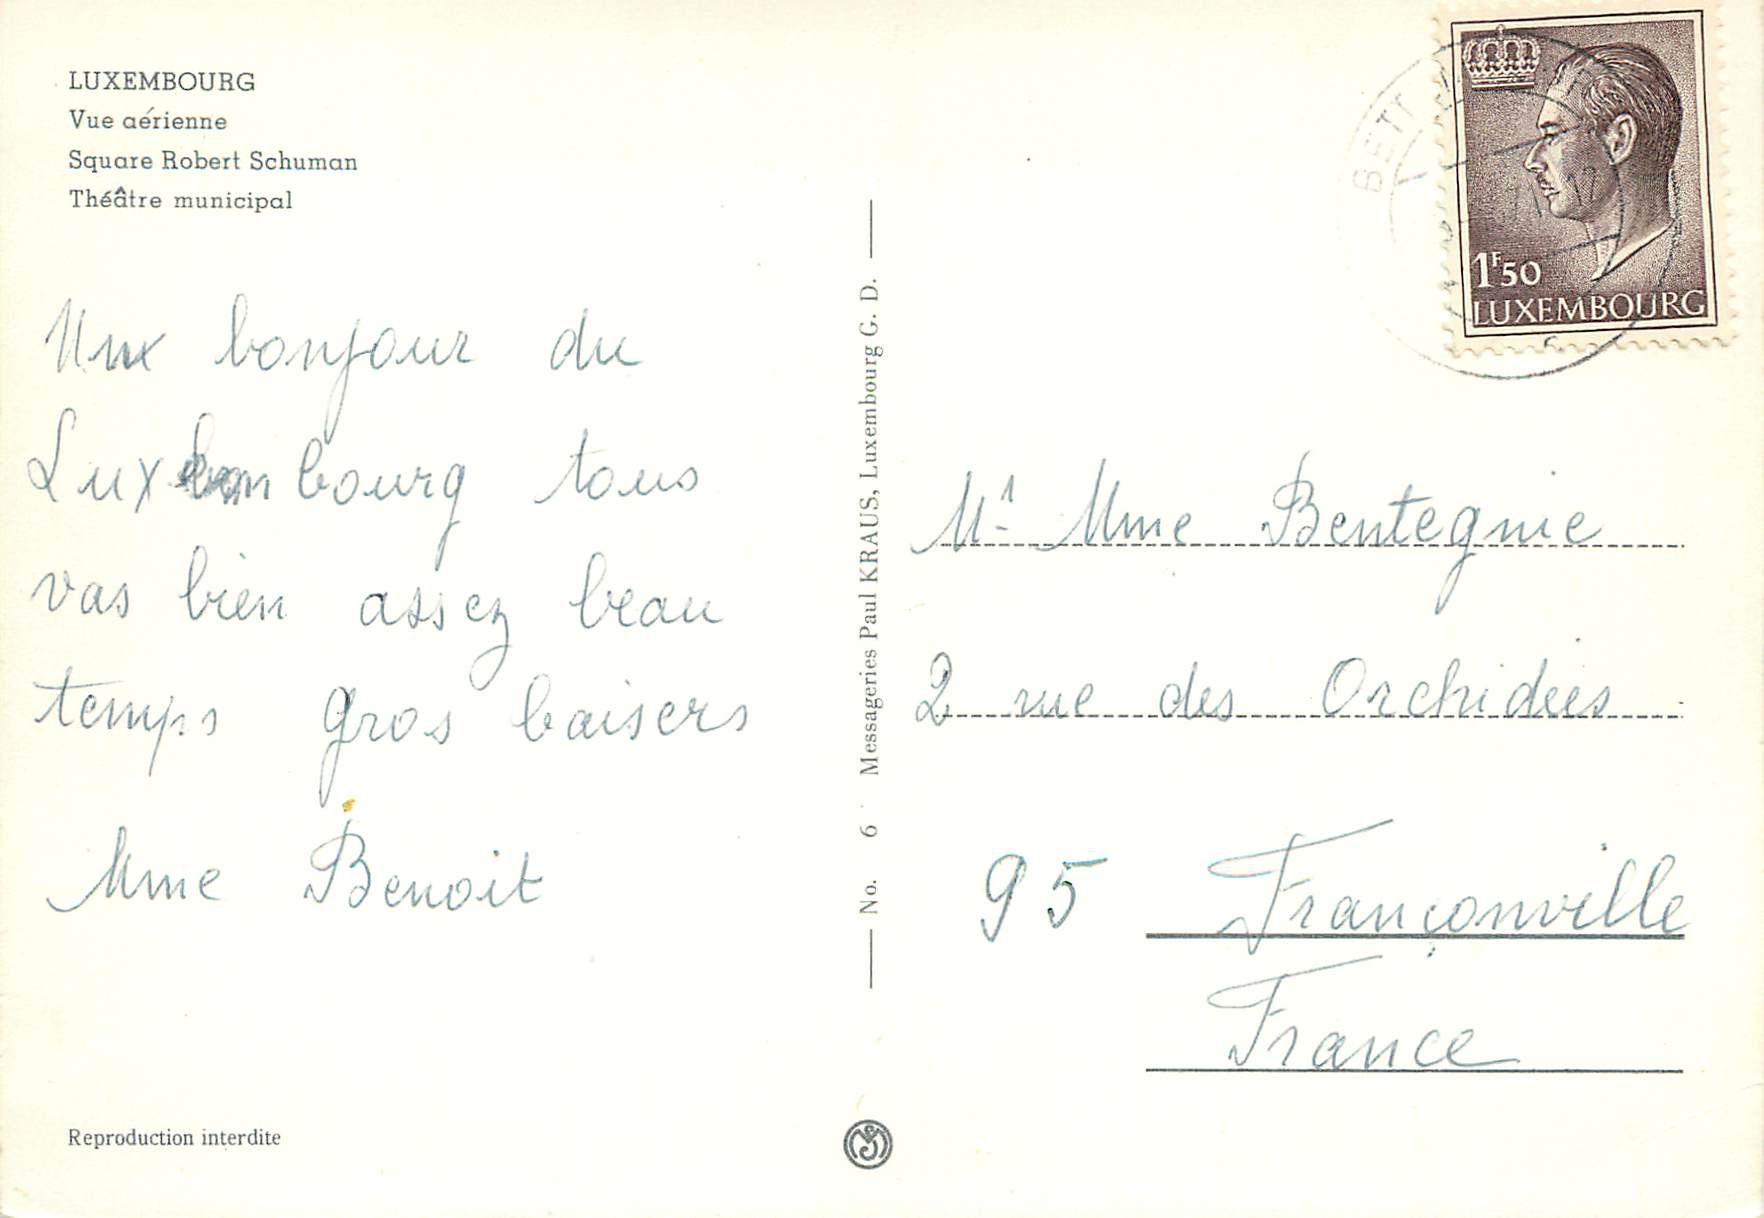 LUXEMBOURG
Vue aérienne
Square Robert Schuman
Théâtre municipal
Un bonjour du
Luxembourg tous
vas bien assez beau
temps gros baisers
Mme Benoit
Reproduction interdite
No. 6 Messageries Paul KRAUS, Luxembourg G. D.
BETT
1F50
LUXEMBOURG
Mr Mme Bentegnie
2 rue des Orchidees
95 Françonville
France